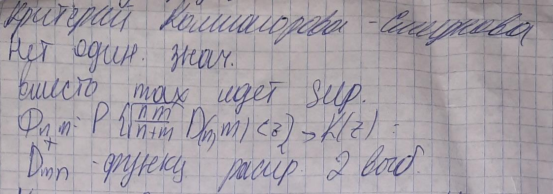 Критерий Колмогорова - Смирнова
Нет один. знач.
вместо max идет sup.
Φn,n: P {√nm/n+m D(n,m) < z} → K(z) =
D⁺mn - функц распр. 2 выб.